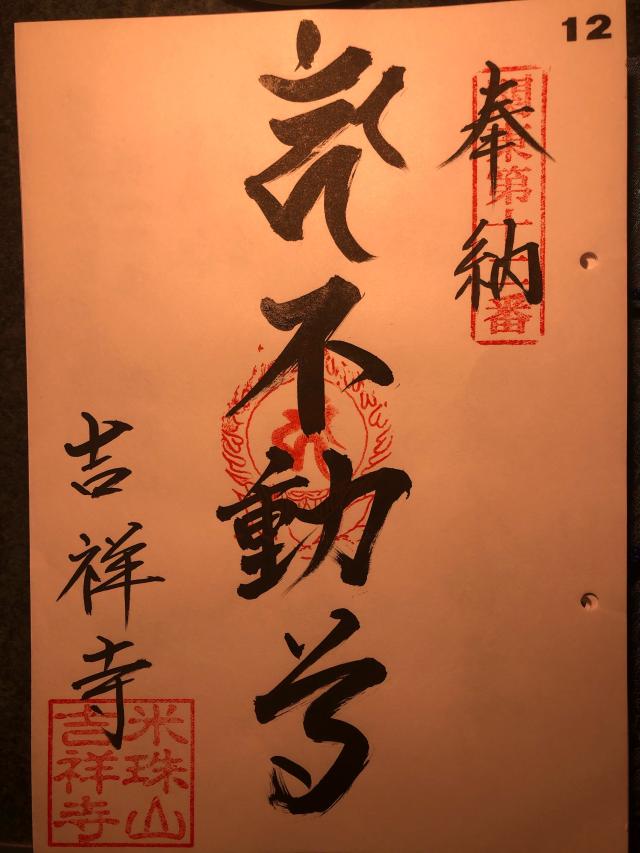 12
奉納
東第十二番
不動尊
吉祥寺
米珠山
吉祥寺